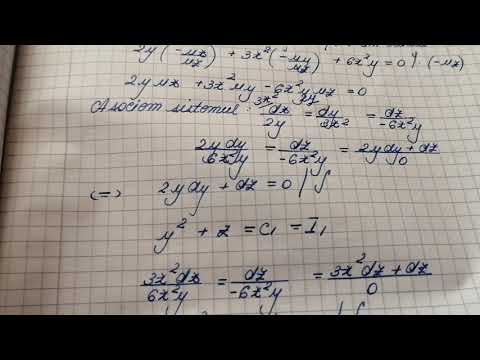 2y(-ux/uz) + 3x²(-uy/uz) + 6x²y = 0 | · (-uz)
2y ux + 3x² uy - 6x²y uz = 0
Asociem sistemul: dx/2y = dy/3x² = dz/-6x²y
2y dy/6x²y = dz/-6x²y = 2y dy + dz/0
<=> 2y dy + dz = 0 | ∫
y² + z = C₁ = I₁
3x² dx/6x²y = dz/-6x²y = 3x² dz + dz/0